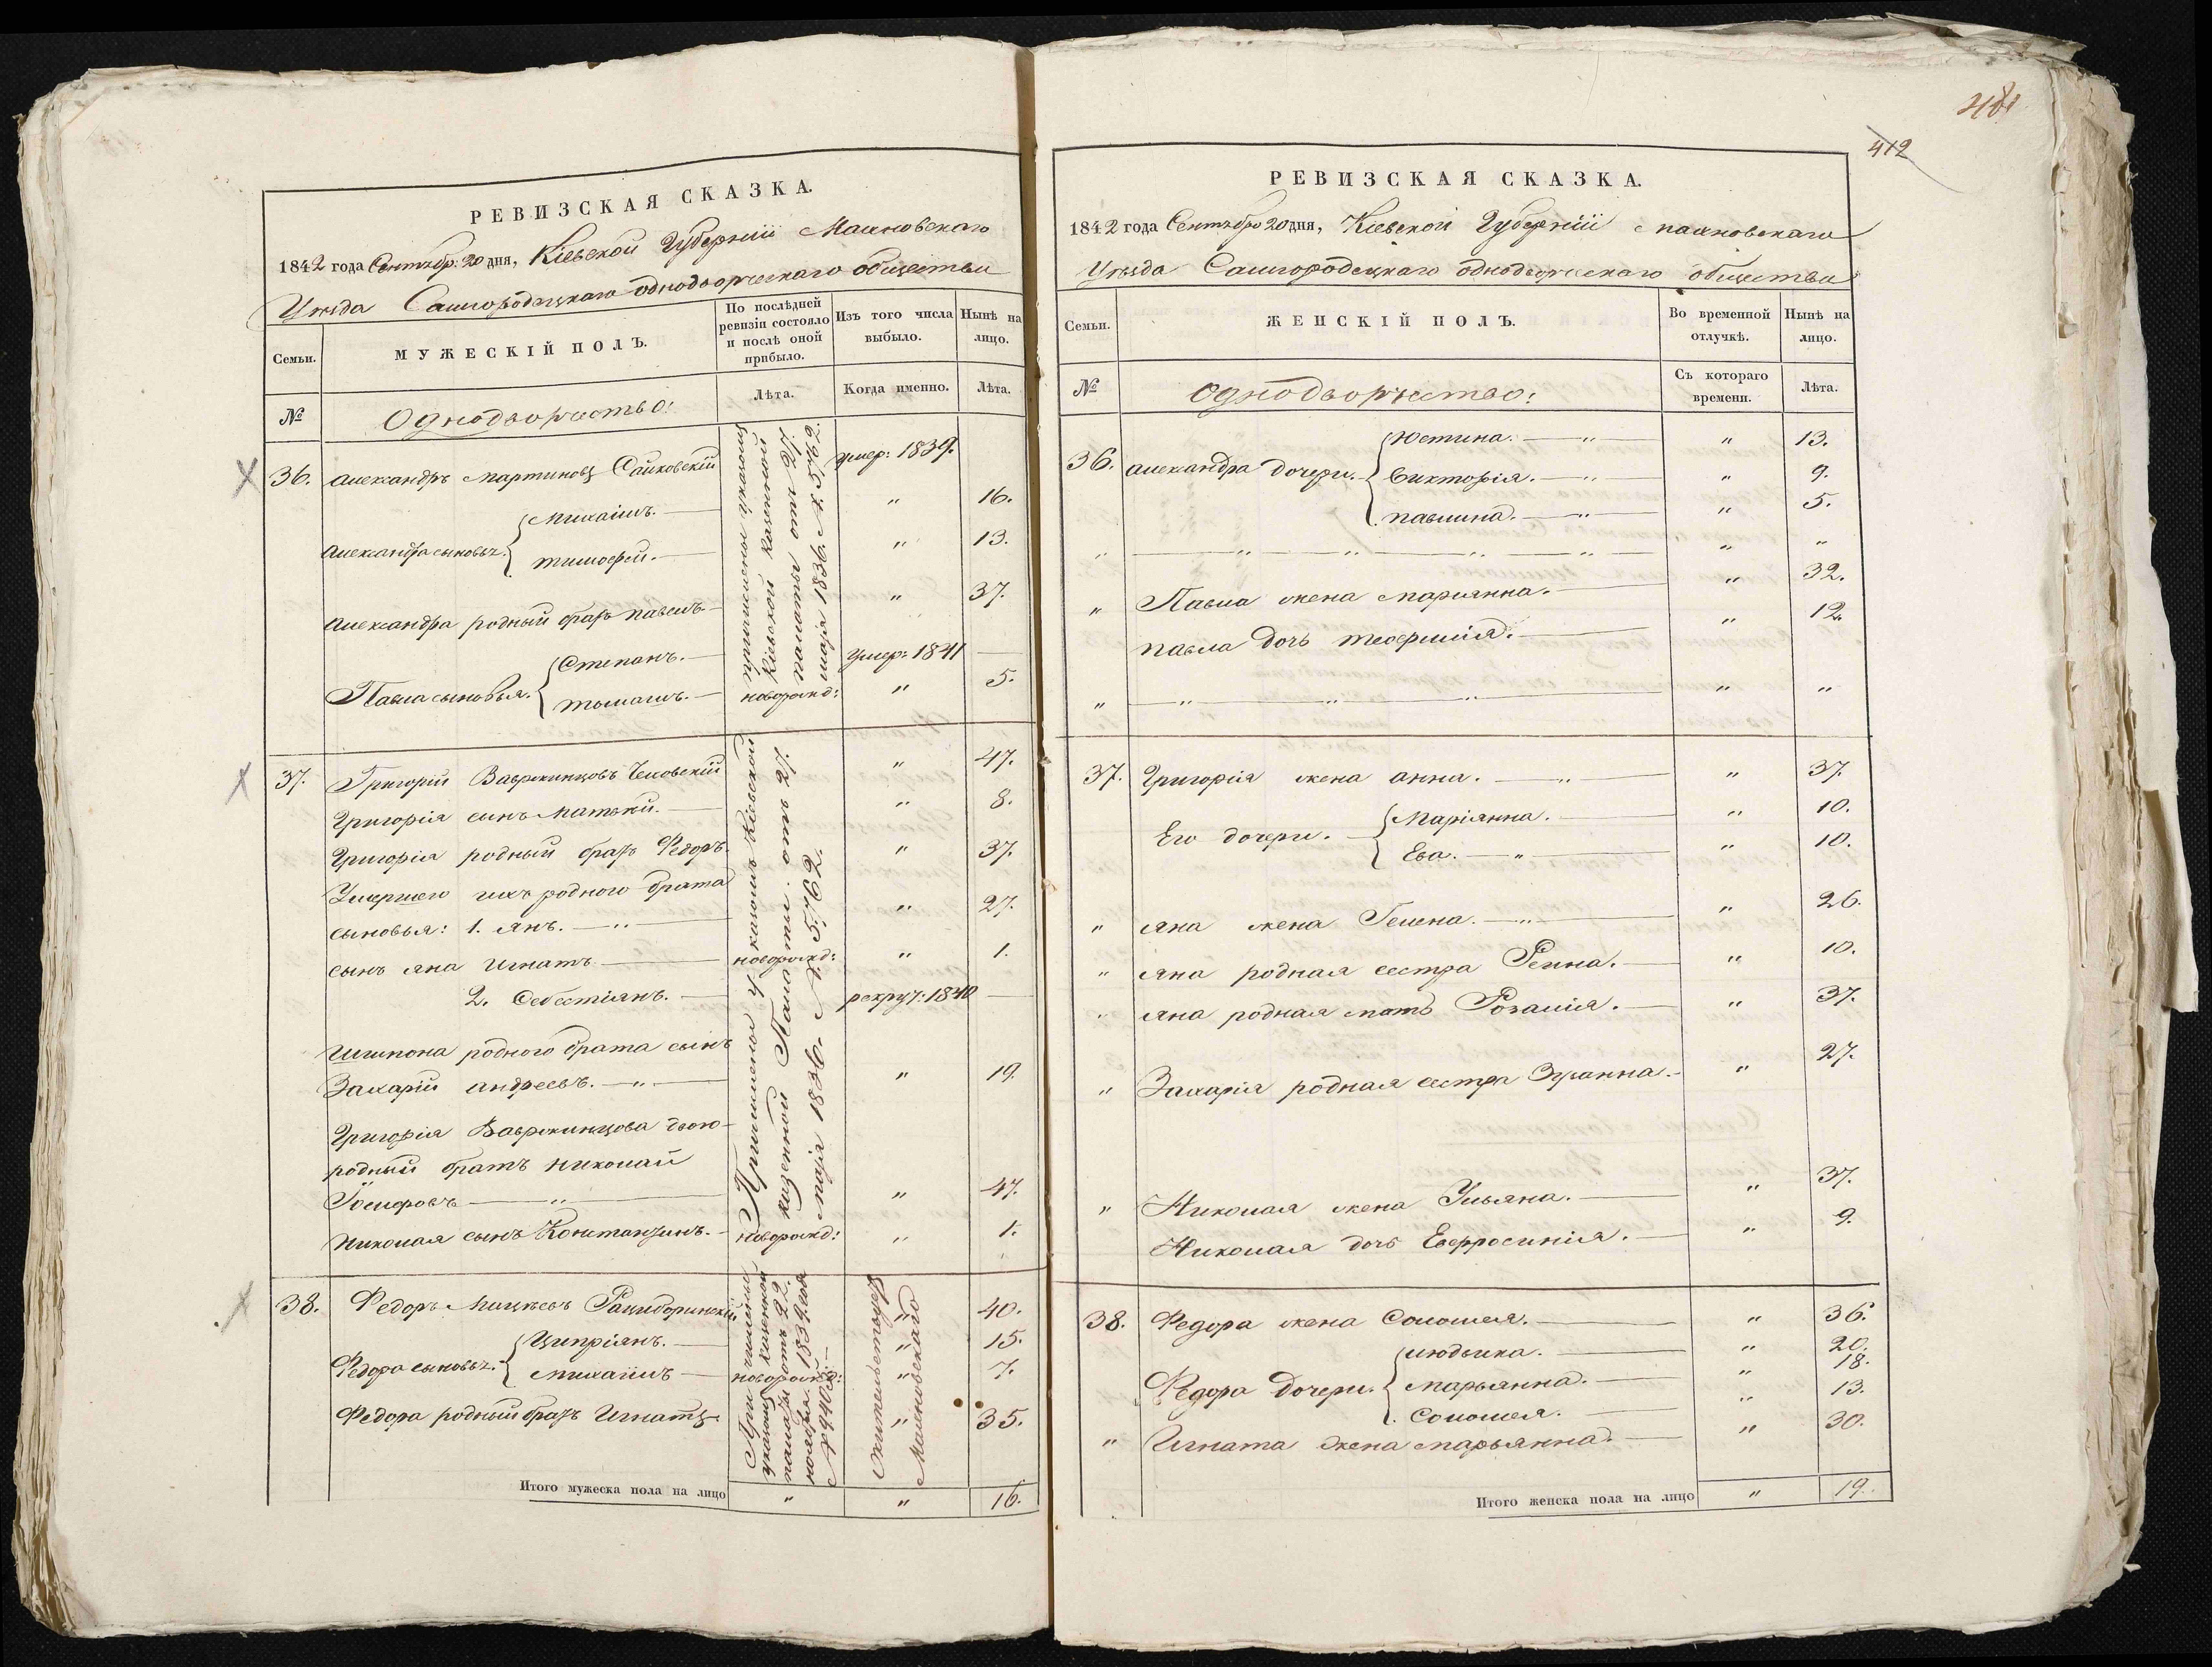 РЕВИЗСКАЯ СКАЗКА.
1842 года Сентябр: 20 дня, Кіевской Губерніи Махновскаго
Уѣзда Самгородецкаго однодворческаго общества
Семьи.
МУЖЕСКІЙ ПОЛЪ.
По послѣдней ревизіи состояло и послѣ оной прибыло.
Изъ того числа выбыло.
Нынѣ на лицо.
№
Однодворчество:
Лѣта.
Когда именно.
Лѣта.
36. Александръ Мартиновъ Сайковскій умер: 1839.
Александра сыновья. Михаилъ. " 16.
Тимофей. " 13.
Александра родный братъ Павелъ " 37.
Павла сыновья. Степанъ. умер: 1841
Томашъ. новорожд: " 5.
причислены указомъ
Кіевской казенной
палаты отъ 27.
маія 1836. №. 5762.
37. Григорій Ваврженцовъ Чеховскій " 47.
Григорія сынъ Матвей. " 8.
Григорія родный братъ Федоръ. " 37.
Умершего ихъ родного брата
сыновья: 1. Янъ. " 27.
сынъ Яна Игнатъ новорожд: " 1.
2. Себестіянъ. рекрут: 1840
родного брата сынъ
Захарій Андреевъ. " 19.
Григорія Ваврженцова двою-
родный братъ Николай
Іосифовъ " 47.
Николая сынъ Константинъ. новорожд: " 1.
Причислены указомъ Кіевской
казенной Палаты отъ 27.
маія 1836. №. 5,762.
38. Федоръ Мацѣевъ Рациборинскій " 40.
Федора сыновья. Ципріянъ. " 15.
Михаилъ новорожд: " 7.
Федора родный братъ Игнатъ " 35.
Причислены
указомъ казенной
палаты отъ 22.
ноября 1839. года
№ 9403.
Жительствуетъ
Махновскаго
Итого мужеска пола на лицо " " 16.
481
412
РЕВИЗСКАЯ СКАЗКА.
1842 года Сентябр 20 дня, Кіевской Губерніи Махновскаго
Уѣзда Самгородецкаго однодворческаго общества
Семьи.
ЖЕНСКІЙ ПОЛЪ.
Во временной отлучкѣ.
Нынѣ на лицо.
№
Однодворчество:
Съ котораго времени.
Лѣта.
36. Александра дочери. Юстина. " 13.
Викторія. " 9.
Павлина. " 5.
" " " " " " "
" Павла жена Марианна. " 32.
Павла дочь Теофилія. " 12.
" " " " " "
37. Григорія жена Анна. " 37.
Его дочери. Маріянна. " 10.
Ева. " 10.
" Яна жена Гелена. " 26.
" Яна родная сестра Регина. " 10.
" Яна родная мать Розалія. " 37.
" Захарія родная сестра Зуzанна. " 27.
" Николая жена Ульяна. " 37.
Николая дочь Евфросинія. " 9.
38. Федора жена Соломея. " 36.
Федора дочери. Людвика. " 20.
Марьянна. " 18.
Соломея. " 13.
" Игната жена Марьянна. " 30.
Итого женска пола на лицо " 19.